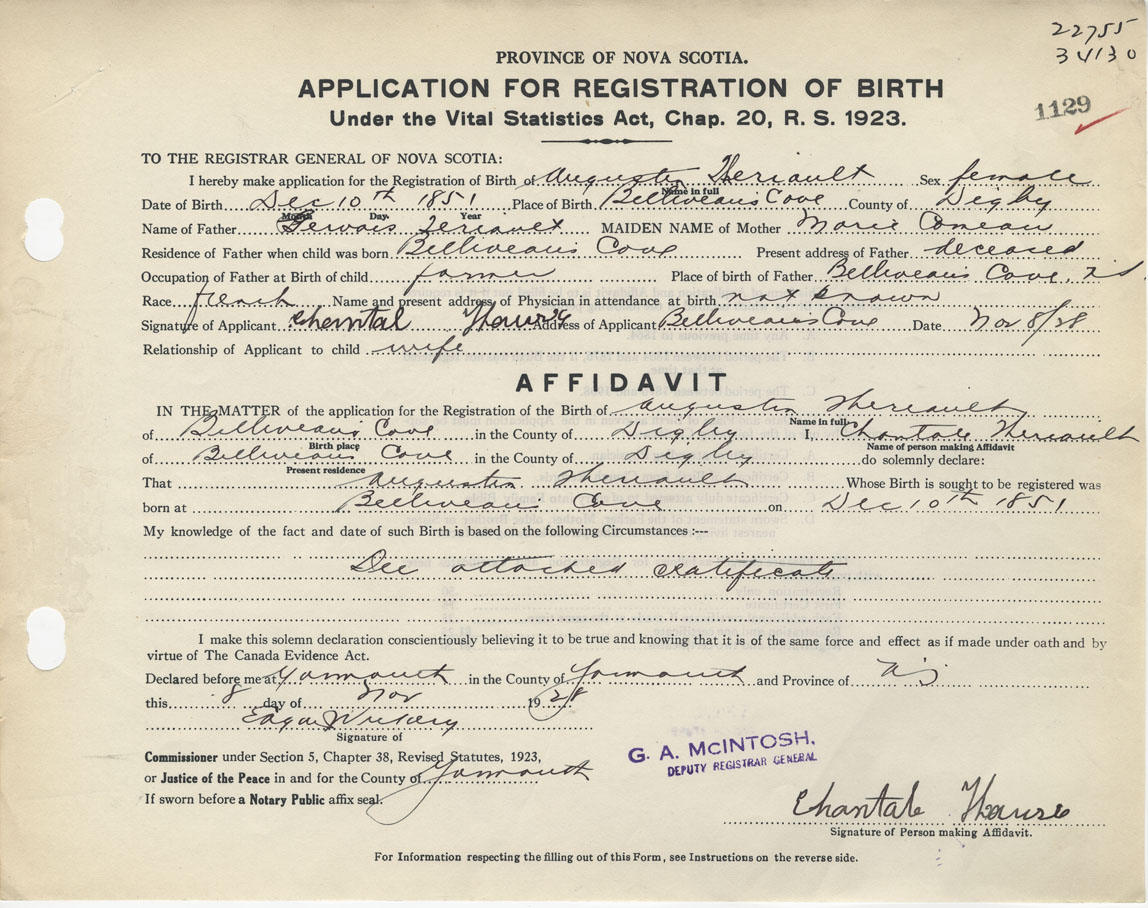 22755
34130
PROVINCE OF NOVA SCOTIA.
APPLICATION FOR REGISTRATION OF BIRTH
1129
Under the Vital Statistics Act, Chap. 20, R. S. 1923.
TO THE REGISTRAR GENERAL OF NOVA SCOTIA:
I hereby make application for the Registration of Birth of Augustin Theriault Sex female
Name in full
Date of Birth Dec 10th 1851 Place of Birth Belliveaus Cove County of Digby
Month Day. Year
Name of Father Gervais Teriault MAIDEN NAME of Mother Marie Comeau
Residence of Father when child was born Belliveaus Cove Present address of Father deceased
Occupation of Father at Birth of child farmer Place of birth of Father Belliveaus Cove, NS
Race french Name and present address of Physician in attendance at birth not known
Signature of Applicant Address of Applicant Belliveaus Cove Date Nov 8/28
Relationship of Applicant to child wife
AFFIDAVIT
IN THE MATTER of the application for the Registration of the Birth of Augustin Theriault
Name in full
of Belliveaus Cove in the County of Digby I, Chantale Theriault
Birth place Name of person making Affidavit
of Belliveaus Cove in the County of Digby do solemnly declare:
Present residence
That Augustin Theriault Whose Birth is sought to be registered was
born at Belliveaus Cove on Dec 10th 1851
My knowledge of the fact and date of such Birth is based on the following Circumstances :---
See attached certificate
I make this solemn declaration conscientiously believing it to be true and knowing that it is of the same force and effect as if made under oath and by
virtue of The Canada Evidence Act.
Declared before me at Yarmouth in the County of Yarmouth and Province of NS
this 8 day of Nov 1928
Edgar
Signature of
Commissioner under Section 5, Chapter 38, Revised Statutes, 1923,
or Justice of the Peace in and for the County of Yarmouth
If sworn before a Notary Public affix seal.
G. A. McINTOSH,
DEPUTY REGISTRAR GENERAL
Chantale
Signature of Person making Affidavit.
For Information respecting the filling out of this Form, see Instructions on the reverse side.